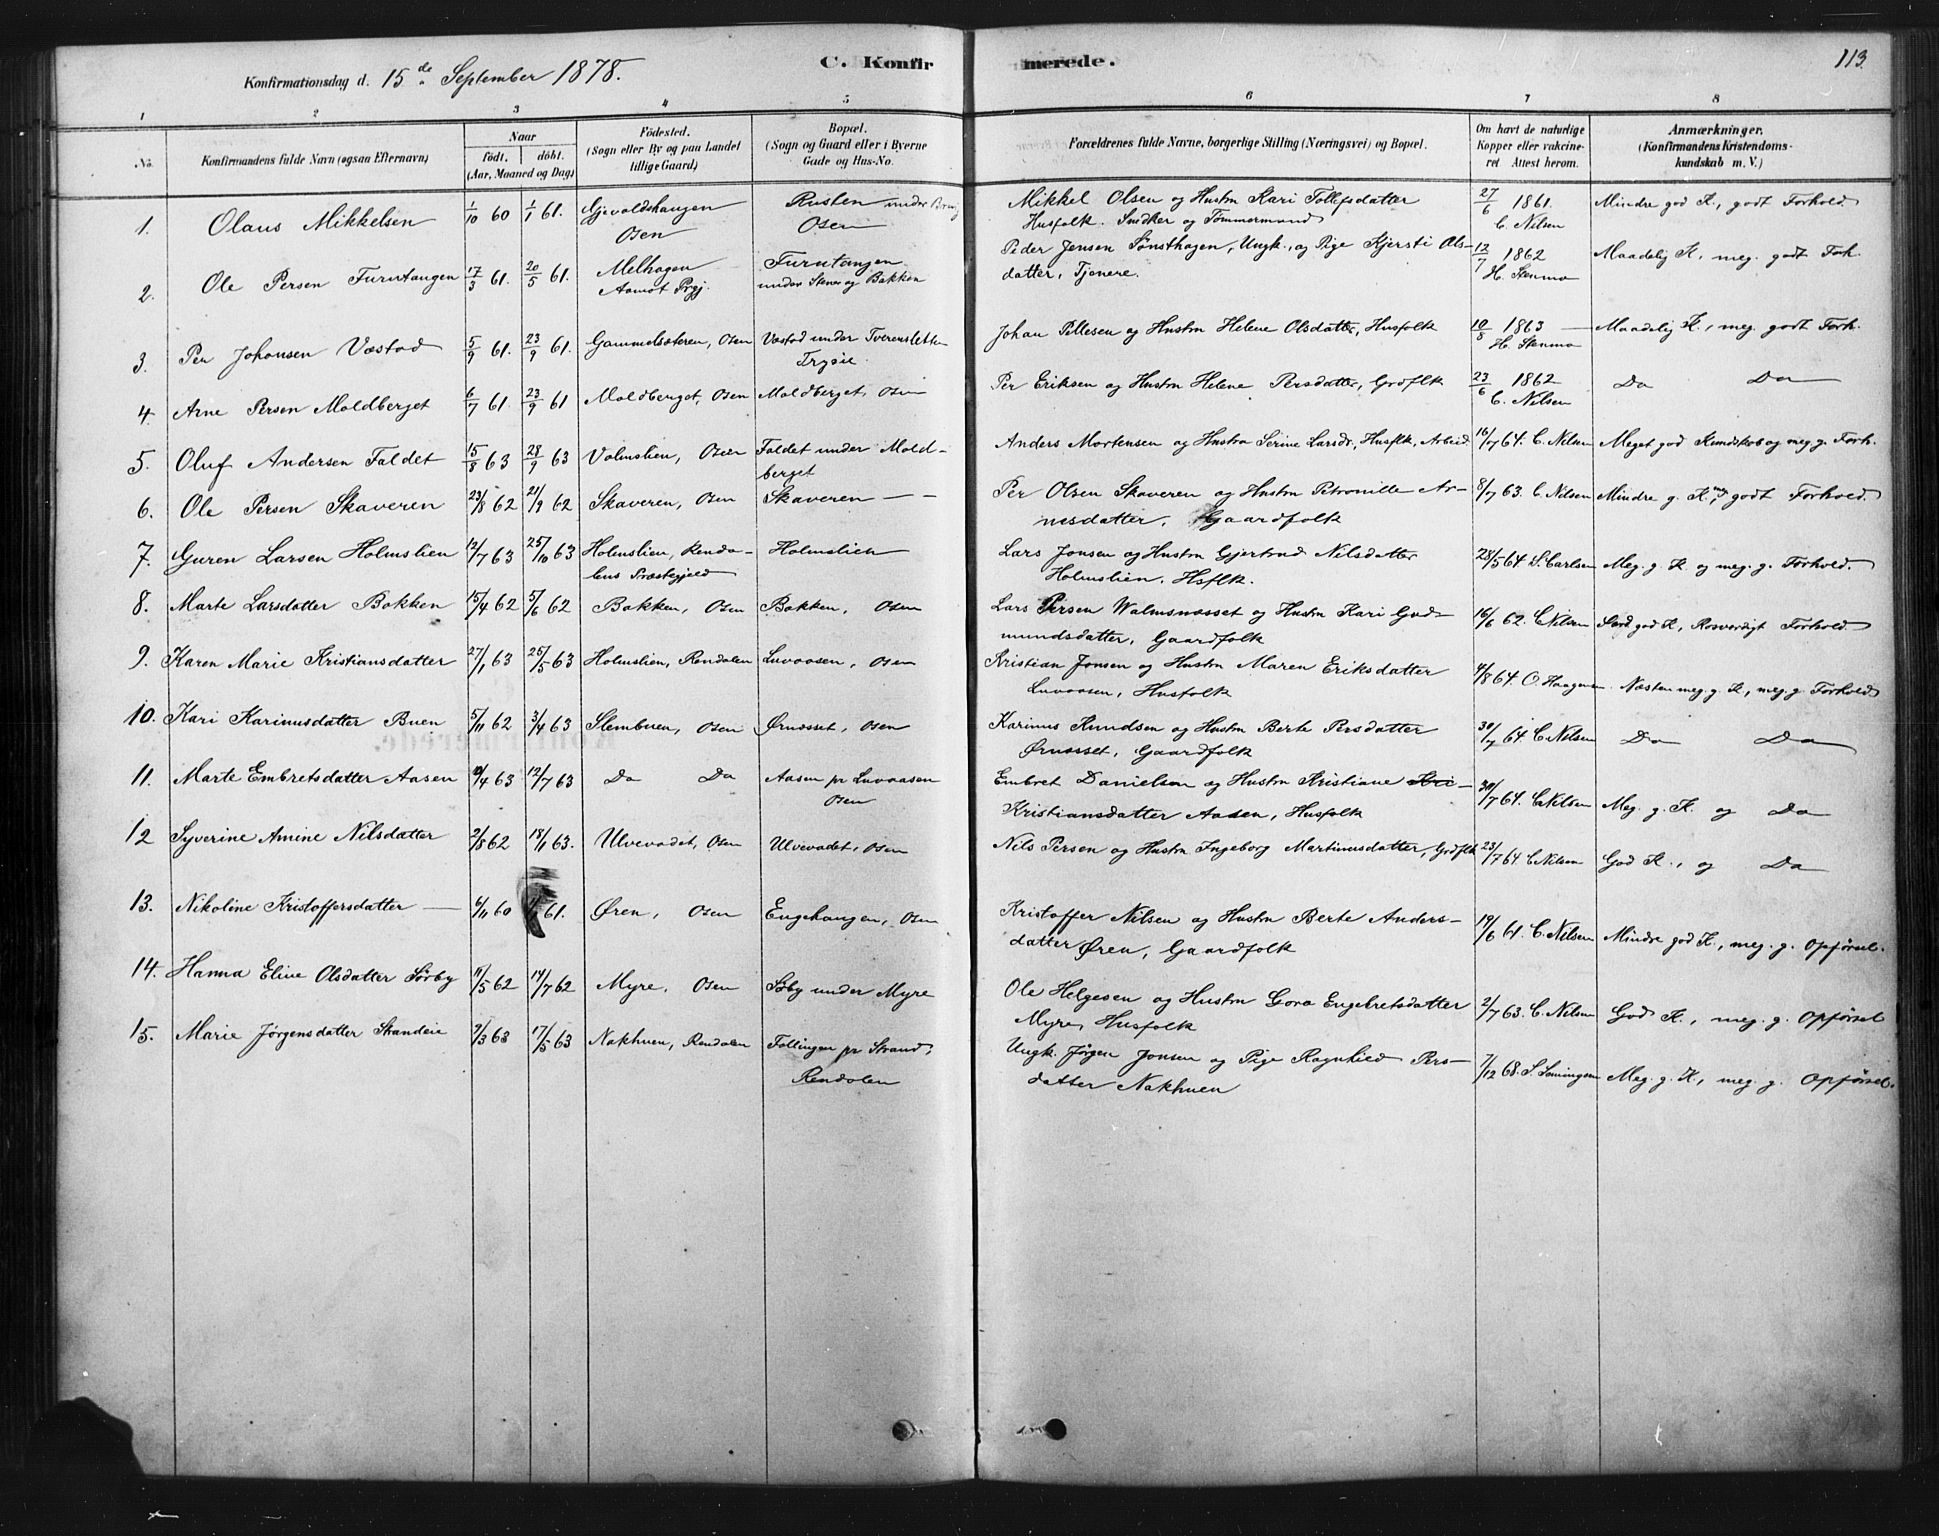 113.
Konfirmationsdag d. 15de September 1878.
C. Konfirmerede.
1 2 3 4 5 6 7 8
No.
Konfirmandens fulde Navn (ogsaa Efternavn)
Naar
födt. döbt.
(Aar, Maaned og Dag)
Födested.
(Sogn eller By og paa Landet
tillige Gaard)
Bopæl.
(Sogn og Gaard eller i Byerne
Gade og Hus-No.
Forældrenes fulde Navne, borgerlige Stilling (Næringsvei) og Bopæl.
Om havt de naturlige
Kopper eller vakcine-
ret Attest herom.
Anmærkninger.
(Konfirmandens Kristendoms-
kundskab m. V.)
1. Olaus Mikkelsen 1/10 60 1/1 61. Gjevoldshaugen Rusten under
Osen Osen
Mikkel Olsen og Hustru Kari Tollefsdatter 27/6 1861. Mindre god K., godt Forhold
Husfolk. Snedker og Tømmermand C. Nilsen
2. Ole Persen Furutangen 17/3 61. 20/5 61. Melhagen Furutangen
Aamot Prgj. under Stener og Bakken
Peder Jensen Sønsthagen, Ungk., og Pige Kjersti Ols- 12/7 1862 Maadelig K., meg. godt Forh.
datter, Tjenere. H. Stenmo
3. Per Johansen Væstad 5/9 61. 23/9 61. Gammelsæteren, Osen Væstad under Tverensletten
Trysil.
Johan Pellesen og Hustru Helene Olsdatter, Husfolk 10/8 1863 Maadelig K., meg. godt Forh.
H. Stenmo
4. Arne Persen Moldberget 6/7 61. 23/9 61 Moldberget, Osen Moldberget, Osen
Per Eriksen og Hustru Helene Persdatter, Grdflk 23/6 1862 Do Do
C. Nilsen
5. Oluf Andersen Faldet 15/8 63 28/9 63 Volmslien, Osen Faldet under Mold-
berget
Anders Mortensen og Hustru Serine Larsdr, Husflk, Arbeid. 16/7 64. C. Nilsen Meget god Kundskab og meg. g. Forh.
6. Ole Persen Skaveren 23/8 62 21/9 62 Skaveren, Osen Skaveren — —
Per Olsen Skaveren og Hustru Petronille Ar- 8/7 63. C. Nilsen Mindre g. K., godt Forhold.
nesdatter, Gaardfolk
7. Guren Larsen Holmslien 12/7 63 25/10 63 Holmslien, Renda- Holmslien
lens Præstegjeld
Lars Jonsen og Hustru Gjertrud Nilsdatter 28/5 64 S. Carlsen Meg. g. K. og meg. g. Forhold.
Holmslien, Hsflk.
8. Marte Larsdatter Bakken 15/4 62 5/6 62 Bakken, Osen Bakken, Osen
Lars Persen Walmsnæsset og Hustru Kari Gud- 16/6 62. C. Nilsen god K., Rosverdigt Forhold.
mundsdatter, Gaardfolk
9. Karen Marie Kristiansdatter 27/1 63 25/5 63 Holmslien, Rendalen Luvaasen, Osen
Kristian Jonsen og Hustru Maren Eriksdatter 4/8 64. O. Haagensen Næsten meg. g. K., meg. g. Forhold
Luvaasen, Husfolk
10. Kari Karinusdatter Buen 5/11 62 3/4 63 Slembuen, Osen Ørnæsset, Osen
Karinus Knudsen og Hustru Berte Persdatter 30/7 64. C. Nilsen Do Do
Ørnæsset, Gaardfolk
11. Marte Embretsdatter Aasen /4 63 12/7 63 Do Do Aasen pr Luvaasen
Osen
Embret Danielsen og Hustru Kristiane Kri-
Kristiansdatter Aasen, Husfolk 30/7 64. C. Nilsen Meg. g. K. og Do
12 Syverine Amine Nilsdatter 2/8 62 18/1 63. Ulvevadet, Osen Ulvevadet, Osen
Nils Persen og Hustru Ingeborg Martinusdatter, Grdflk 23/7 64 C. Nilsen God K., og Do
13. Nikoline Kristoffersdatter — 6/11 60 61. Øren, Osen Engehaugen, Osen
Kristoffer Nilsen og Hustru Berte Anders- 19/6 61. C. Nilsen Mindre god K., meg. g. Opførsel.
datter Øren, Gaardfolk
14. Hanna Eline Olsdatter Sørby 11/5 62 14/7 62 Myre, Osen Søby under Myre
Ole Helgesen og Hustru Goro Engebretsdatter 2/7 63. C. Nilsen God K., meg. g. Opførsel
Myre, Husfolk
15. Marie Jørgensdatter Skandeie 7/3 63 17/5 63 Nakhuen, Rendalen Follingen pr Strand,
Rendalen
Ungk. Jørgen Jonsen og Pige Ragnhild Pers- 7/12 68. Meg. g. K., meg. g. Opførsel.
datter Nakhuen